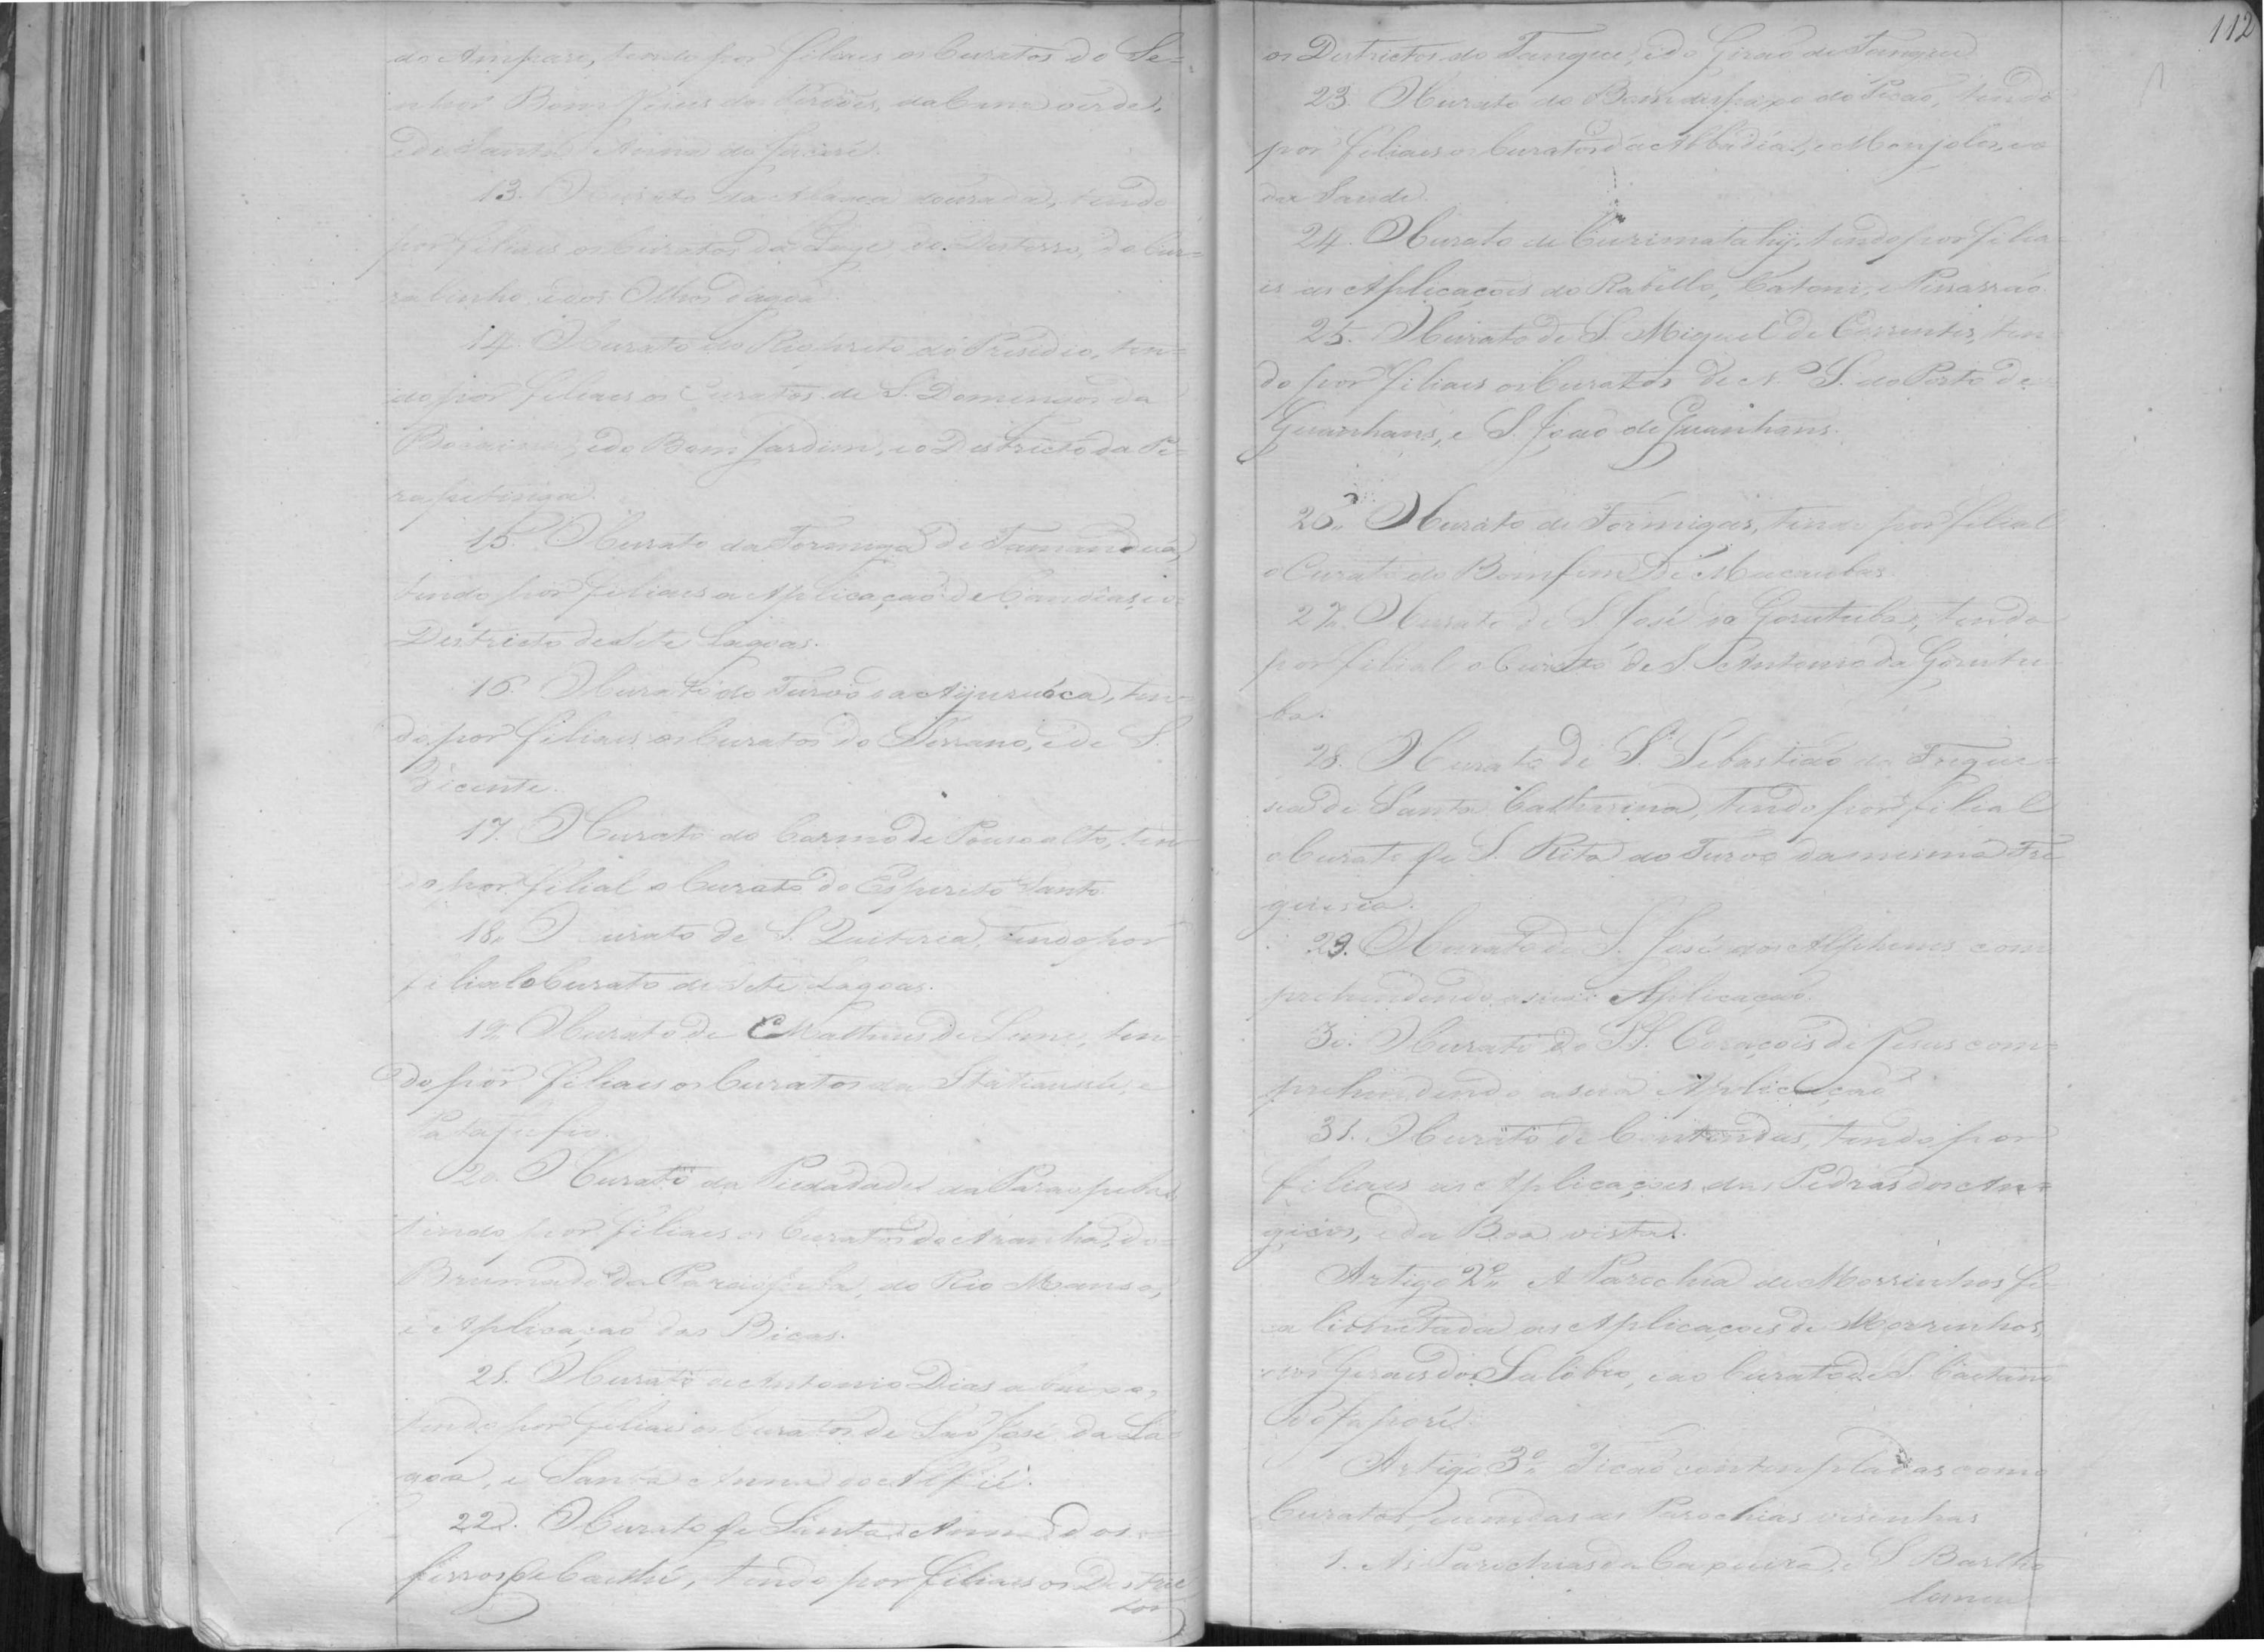 do Amparo, tendo por filiaes os Curatos do Se=
nhor Bom Jesus dos Perdões, da Cana verde,
e de Santa Anna do Jacaré.
13. O Curato da Alagoa dourada, tendo
por filiaes os Curatos da Lage, do Desterro, do Cur=
ralinho, e dos Olhos d'agoa
14. O Curato do Rio preto do Presidio, ten=
do por filiaes os Curatos de S. Domingos da
Bocaina, e do Bom Jardim, e o Districto da Pi=
rapitinga.
15. O Curato da Formiga de Tamanduá,
tendo por filiaes a Aplicação de Candeias, e o
Districto de Sete Lagoas.
16. O Curato do Turvo da Ayuruóca, ten=
do por filiaes os Curatos do Serrano, e de S.
Vicente.
17. O Curato do Carmo de Pouso alto, ten
do por filial o Curato do Espirito Santo
18. O Curato de S. Quiteria, tendo por
filial o Curato de Sete Lagoas.
19. O Curato de Matheus Leme, ten=
do por filiaes os Curatos da Itatiaiussú, e
Patafufio.
20. O Curato da Piedade da Paraopeba,
tendo por filiaes os Curatos do Aranha, do
Brumado da Paraopeba, do Rio Manso,
e Aplicação das Bicas.
21. O Curato de Antonio Dias abaixo,
tendo por filiaes os Curatos de São José da La=
goa, e Santa Anna do Alfié.
22. O Curato de Santa Anna dos
ferros de Caethé, tendo por filiaes os Distric
tos
112
os Districtos do Tanque, e do Girao de Tanque
23. O Curato do Bom despaxo do Picão, tendo
por filiaes os Curatos d'Abbadia, e Monjolos, e o
da Saude.
24. O Curato de Curimatahy, tendo por filia=
es as Aplicações do Rabello, Catoni, e Pissarrão.
25. O Curato de S. Miguel de Correntes, ten
do por filiaes os Curatos de N. S. do Porto de
Guanhans, e S. João de Guanhans.
26. O Curato de Formigas, terá por filial
o Curato do Bomfim de Macaubas
27. O Curato de S. José do Gorutuba, tendo
por filial o Curato de S. Antonio da Gorutu
ba.
28. O Curato de S. Sebastião da Fregue=
sia de Santa Catharina, tendo por filial
o Curato de S. Rita do Turvo da mesma Fre
guesia.
29. O Curato de S. José dos Alfenas com
prehendendo a sua Aplicação.
30. O Curato do SS. Corações de Jesus com=
prehendendo a sua Aplicação
31. O Curato de Contendas, tendo por
filiaes as Aplicações das Pedras dos An=
gicos, e da Boa vista.
Artigo 2º A Parochia de Morrinhos fi
ca limitada as Aplicações de Morrinhos,
e dos Geraes do Salobro, e ao Curato de S. Caetano
do Japoré.
Artigo 3º Ficão contempladas como
Curatos, e unidas as Parochias visinhas
1. As Parochias da Caxoeira, e S. Bartho
lomeu